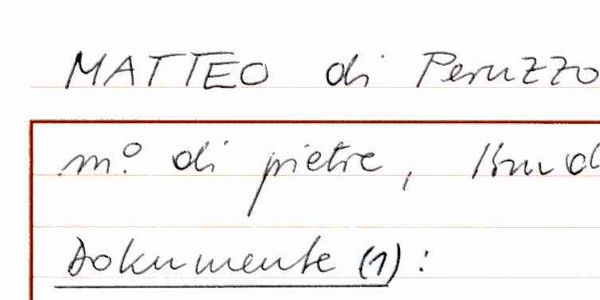 MATTEO di Peruzzo
m.º di pietre,
Dokumente (1):